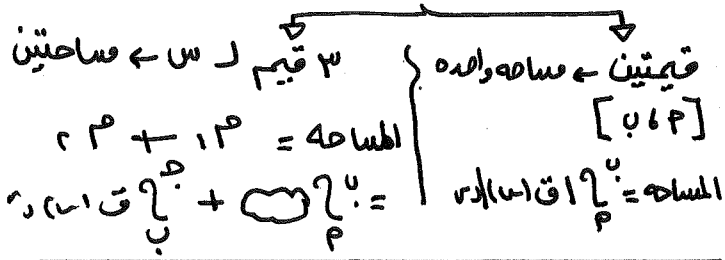 قيمتين ← مساحه واحده
[م ، ب]
المساحه = ∫ م ب |ق(س)| دس
٣ قيم لـ س ← مساحتين
المساحة = م١ + م٢
= ∫ م ب + ∫ ب جـ ق(س) دس